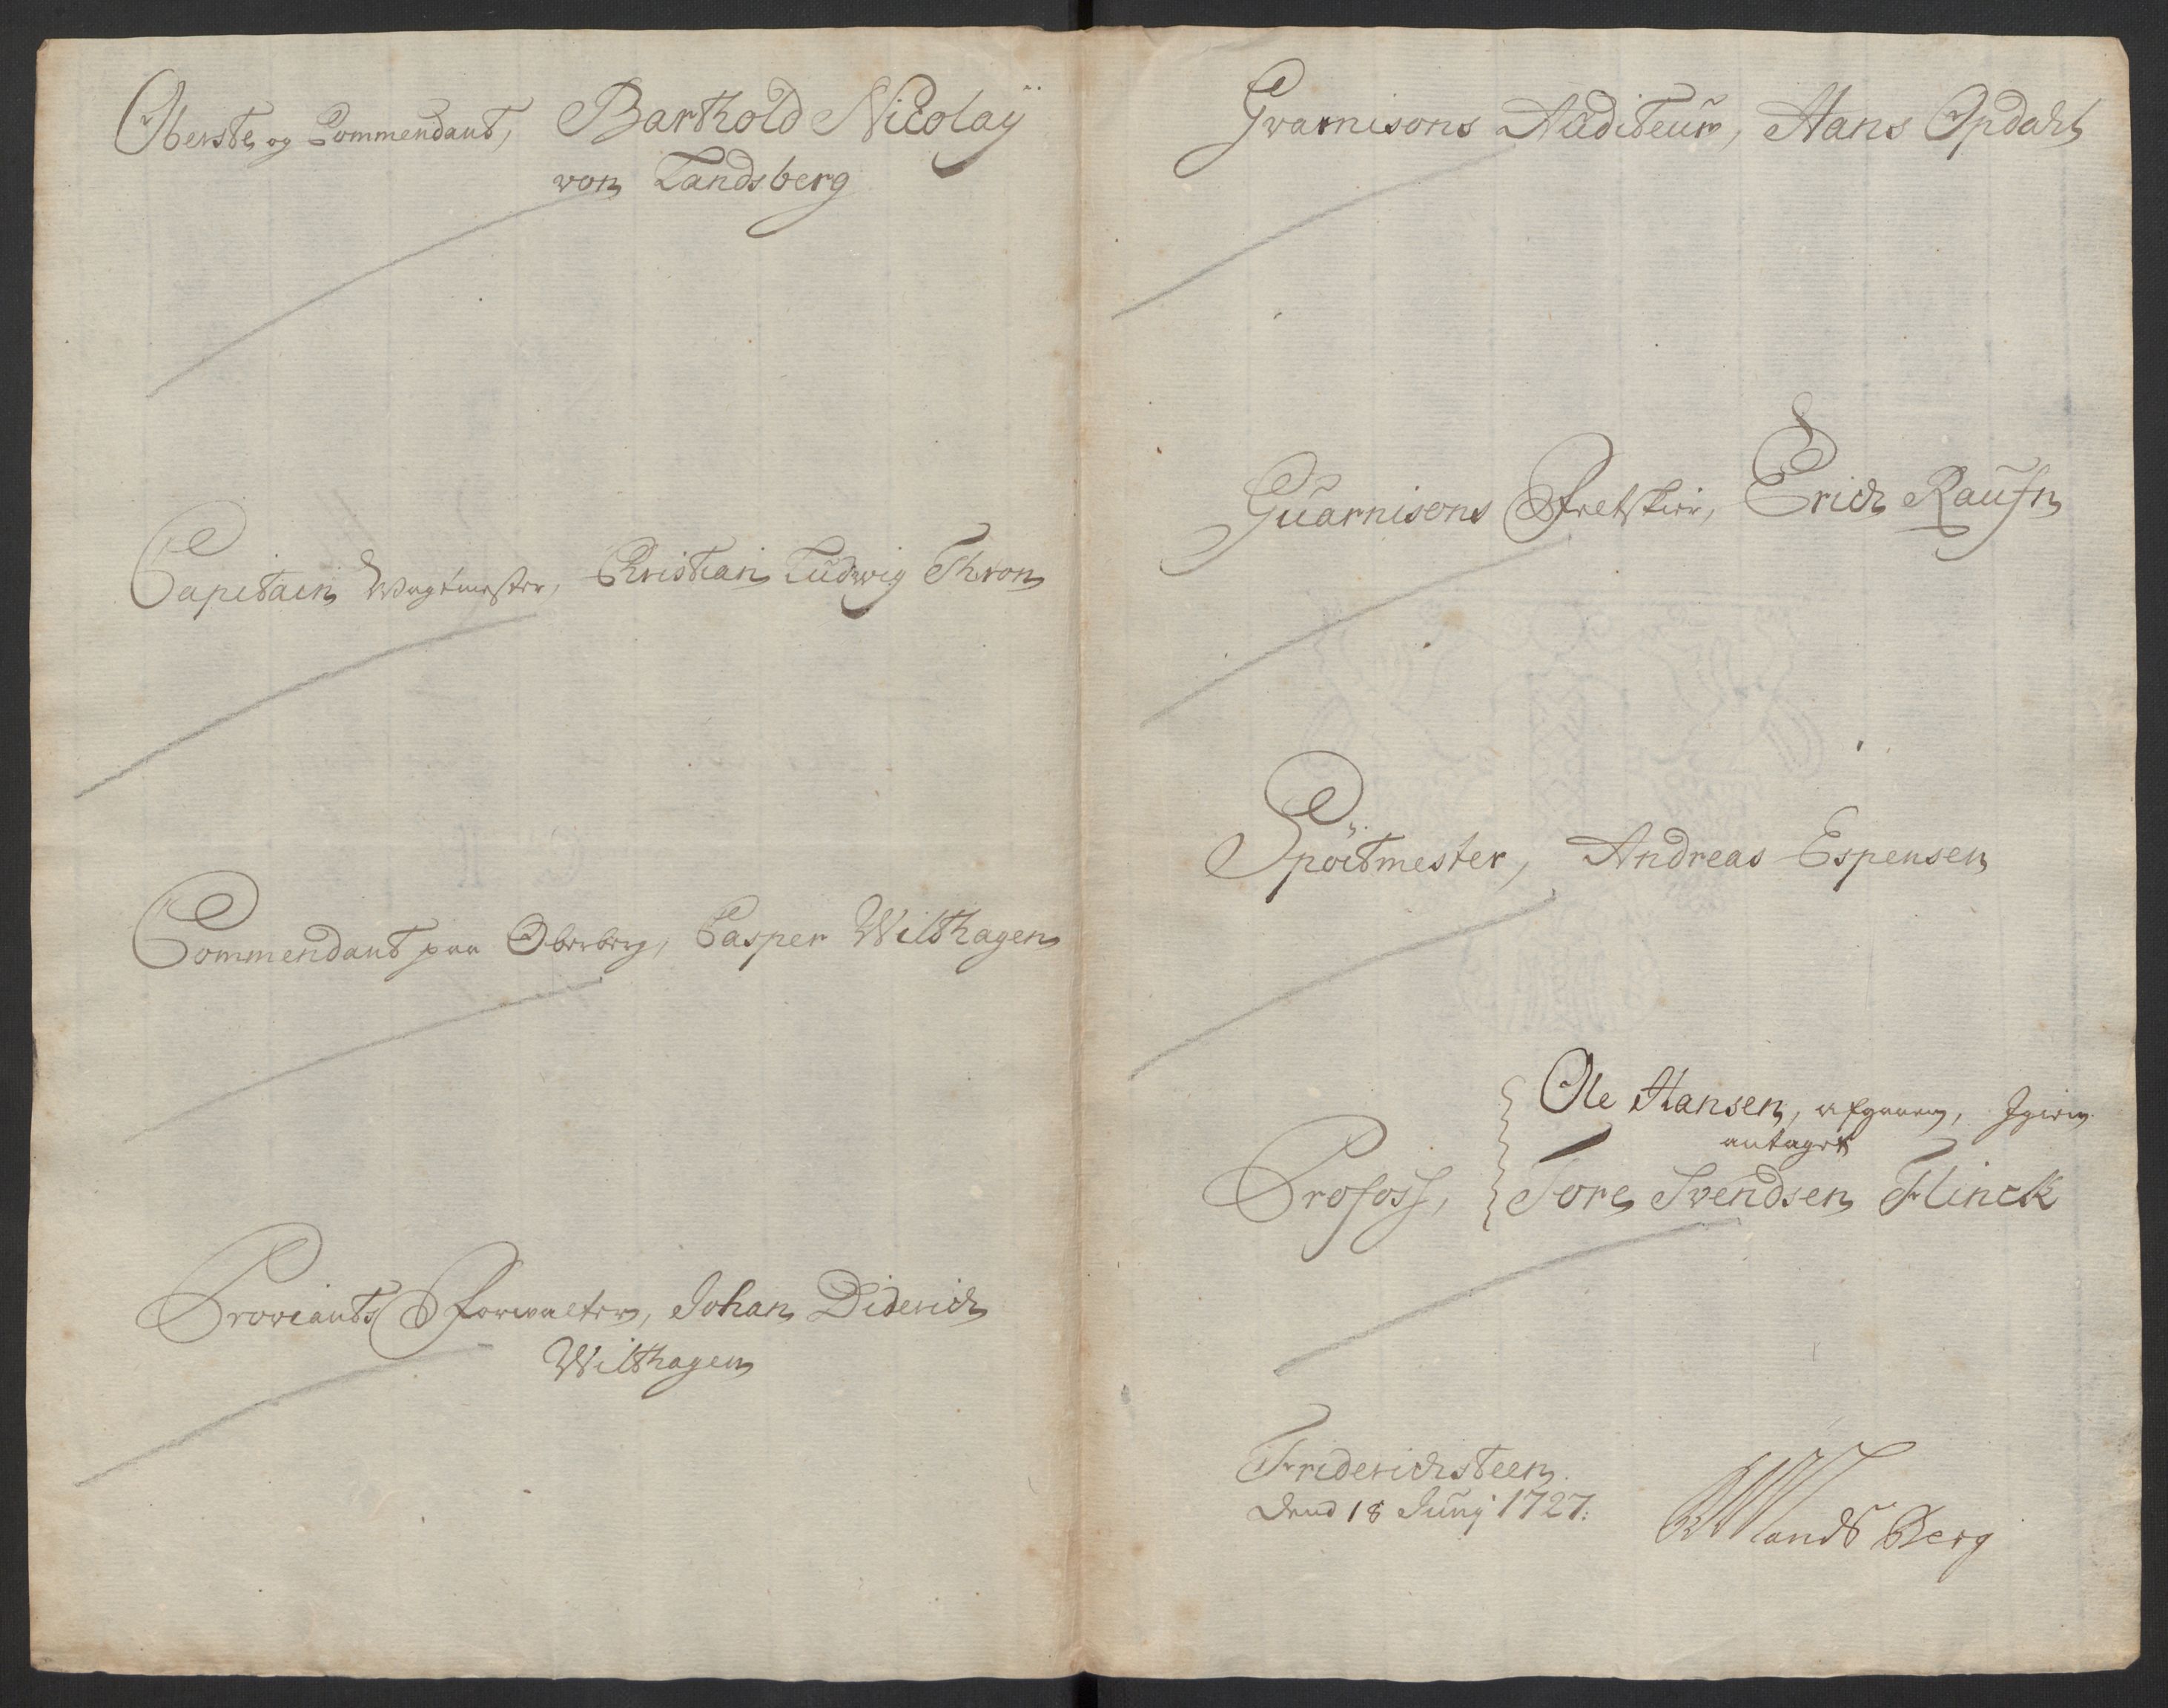 Oberste og Commendant, Barthold Nicolaÿ
von Landsberg
Capitain Wagtmester, Christian Ludwig Thron
Commendant paa Oberberg, Casper Wilthagen
Proviants Forvalter, Johan Diderich
Wilthagen
Gvarnisons Auditeur, Hans Opdahl
Guarnisons Feltskier, Erich Raufn
Spöitmester, Andreas Espensen
Ole Hansen, afgaaen, Igien
antaget
Profoss, Tore Svendsen Flinck
Friderichsteen
Dend 18 Junij 1727.
BNVLandsBerg